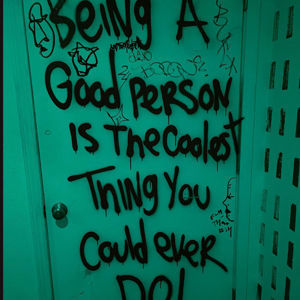 BEING A
Good PERSON
IS The Coolest
THING YOU
Could ever
DO!